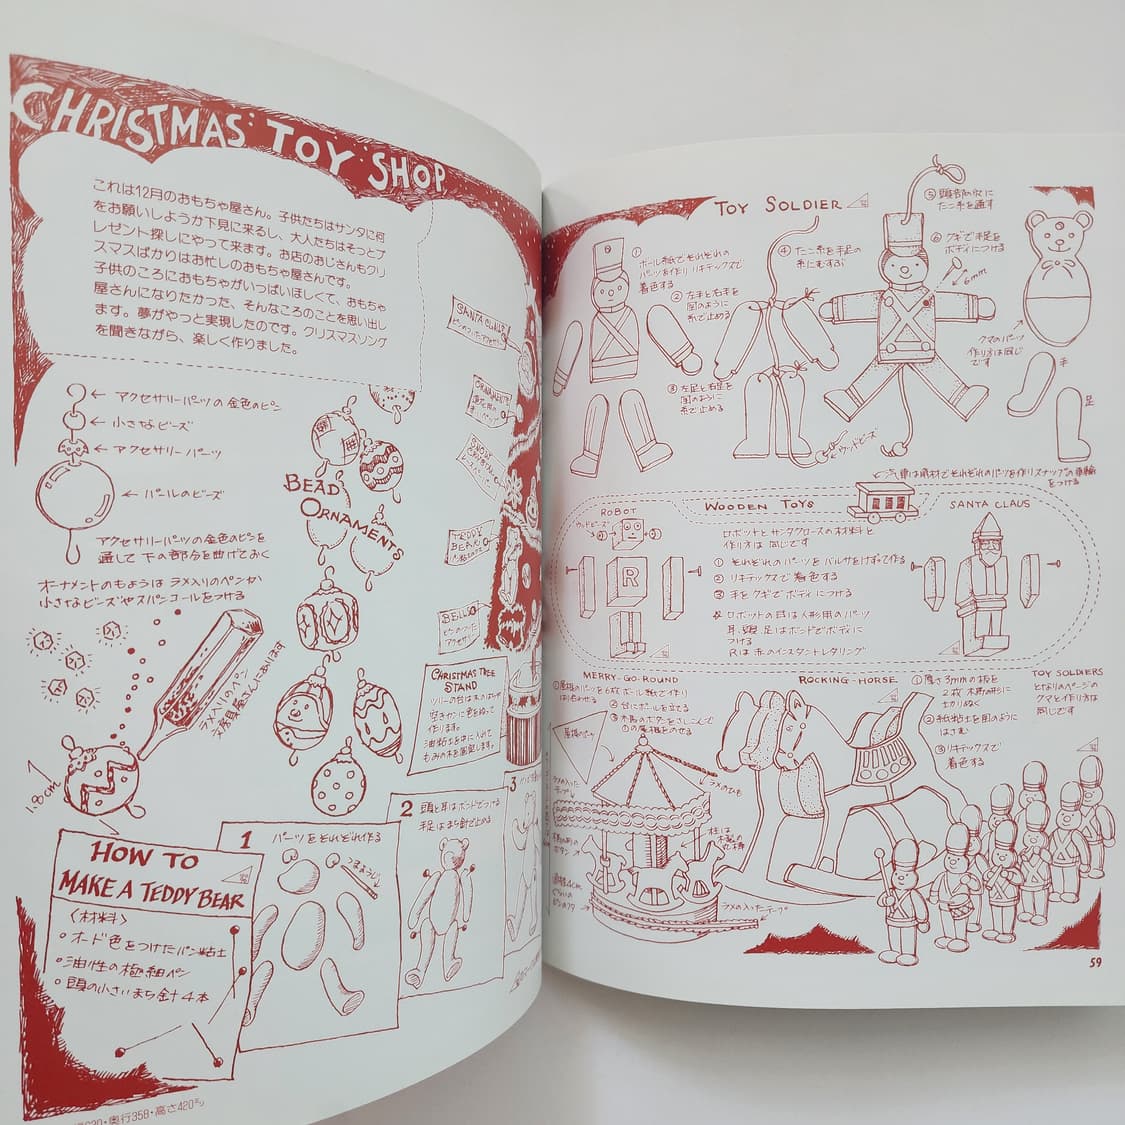 CHRISTMAS TOY SHOP
これは12月のおもちゃ屋さん。子供たちはサンタに何
をお願いしようか下見に来るし、大人たちはそっとプ
レゼント探しにやって来ます。お店のおじさんもクリ
スマスばかりはお忙しのおもちゃ屋さんです。
子供のころにおもちゃがいっぱいほしくて、おもちゃ
屋さんになりたかった、そんなころのことを思い出し
ます。夢がやっと実現したのです。クリスマスソング
を聞きながら、楽しく作りました。
アクセサリーパーツの金色のピン
小さなビーズ
アクセサリーパーツ
パールのビーズ
アクセサリーパーツの金色のピンを
通して下の部分を曲げておく
オーナメントのもようは ラメ入りのペンか
小さなビーズやスパンコールをつける
BEAD
ORNAMENTS
SANTA CLAUS
ORNAMENT
TEDDY
BEAR
BELL
ラメ入りのペン
文具屋さんにあります
1.8cm
CHRISTMAS TREE
STAND
ツリーの台は木のはちや
空きカンに色をぬって
作ります。
油粘土を中に入れて
もみの木を固定します。
HOW TO
MAKE A TEDDY BEAR
〈材料〉
○オード色をつけたパン粘土
○油性の極細ペン
○頭の小さいまち針4本
1
パーツをそれぞれ作る
つまようじ
2
頭と耳はボンドでつける
手足はまち針で止める
3
・奥行358・高さ420ミリ
TOY SOLDIER
①
ボール紙でそれぞれの
パーツを作り リキテックスで
着色する
②左手と右手を
図のように
糸で止める
③左足と右足を
図のように
糸で止める
④たこ糸を手足の
糸にむすぶ
⑤頭部の穴に
たこ糸を通す
⑥クギで手足を
ボディにつける
6mm
ウッドビーズ
クマのパーツ
作り方は同じ
です
手
足
汽車は廃材でそれぞれのパーツを作りスナップの車輪
をつける
WOODEN TOYS
ROBOT
ウッドビーズ
R
SANTA CLAUS
ロボットとサンタクロースの材料と
作り方は 同じです
①それぞれのパーツをバルサをけずって作る
②リキテックスで着色する
③手をクギでボディにつける
ロボットの目は人形用のパーツ
耳、頭、足はボンドでボディに
つける
Rは赤のインスタントレタリング
MERRY-GO-ROUND
①屋根のパーツを6枚ボール紙で作り
はり合わせる
②台にポールを立てる
③木馬のボタンをさしこんで
①の屋根をのせる
屋根のパーツ
ラメのひも
ラメの入ったテープ
ROCKING-HORSE
①厚さ3mmの板を
2枚 木馬の形に
切りぬく
②紙粘土を図のように
はさむ
③リキテックスで
着色する
TOY SOLDIERS
となりのページの
クマと作り方は
同じです
59